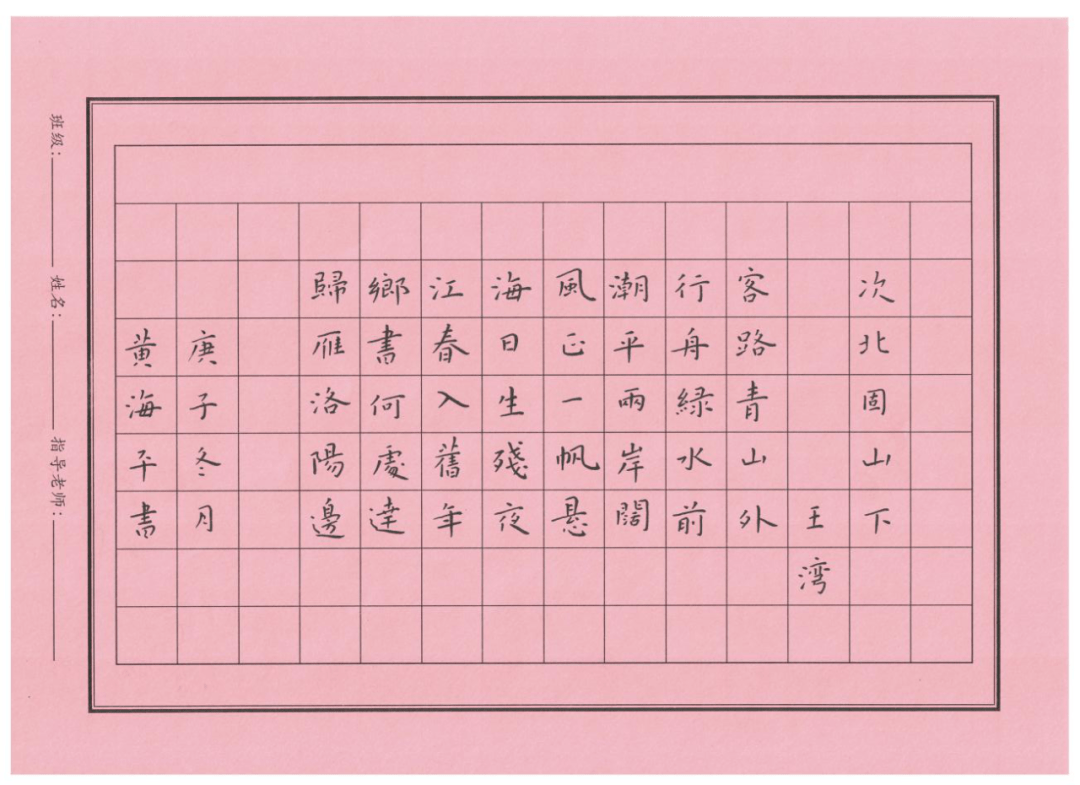 次北固山下
王湾
客路青山外
行舟緑水前
潮平兩岸闊
風正一帆悬
海日生殘夜
江春入舊年
鄉書何處達
歸雁洛陽邊
庚子冬月
黄海平書
班级:
姓名:
指导老师: